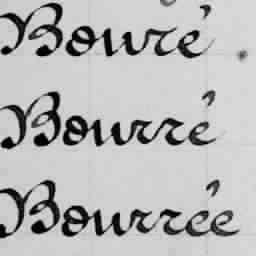 Bouré
Bourré
Bourrée